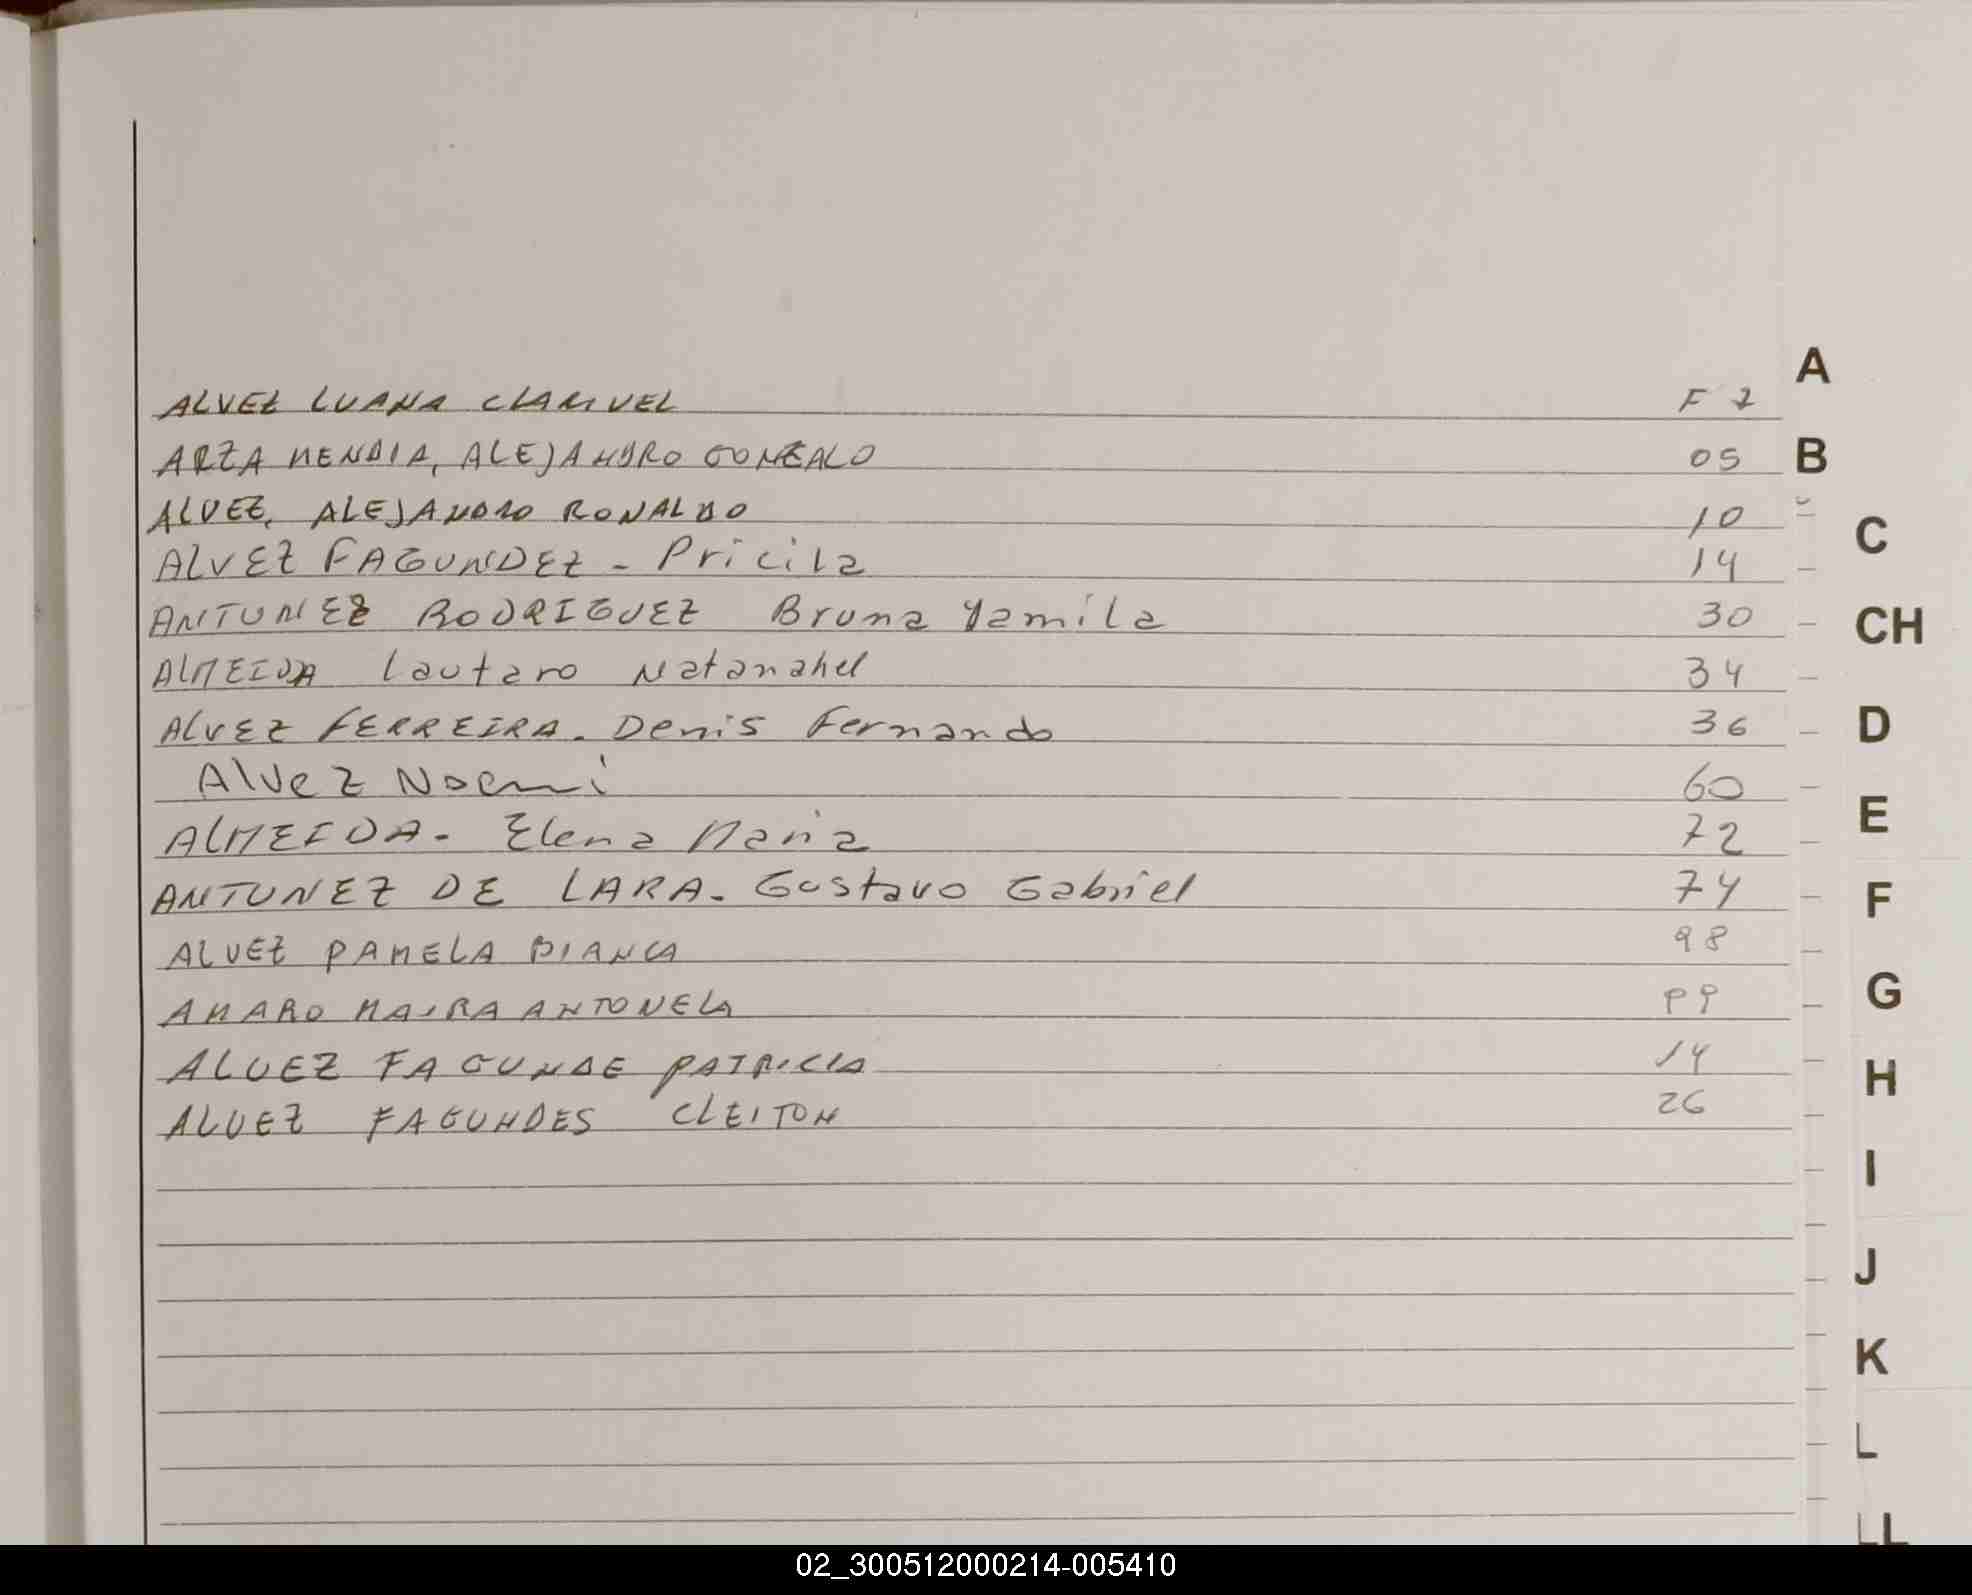 ALVEZ LUANA CLARIVEL F 2
ARZAMENDIA, ALEJANDRO GONZALO 05
ALVEZ, ALEJANDRO RONALDO 10
ALVEZ FAGUNDEZ - Pricila 14
ANTUNEZ RODRIGUEZ Bruna Yamila 30
ALMEIDA Lautaro Natanahel 34
ALVEZ FERREIRA. Denis Fernando 36
Alvez Noemi 60
ALMEIDA - Elena Maria 72
ANTUNEZ DE LARA. Gustavo Gabriel 74
ALVEZ PAMELA BIANCA 98
AMARO MAIRA ANTONELA 99
ALVEZ FAGUNDE PATRICIA 14
ALVEZ FAGUNDES CLEITON 26
A
B
C
CH
D
E
F
G
H
I
J
K
L
LL
02_300512000214-005410